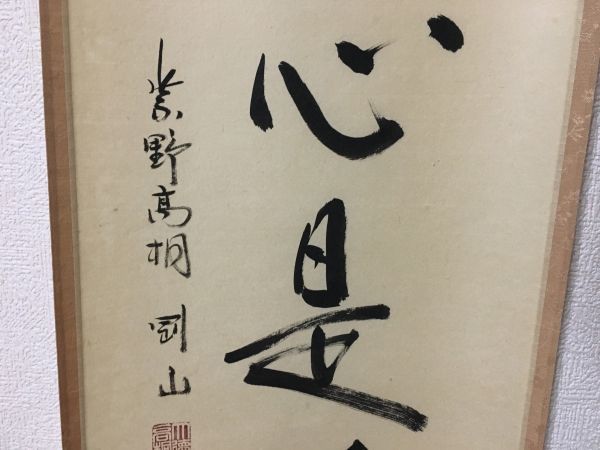 心是
紫野高桐 剛山